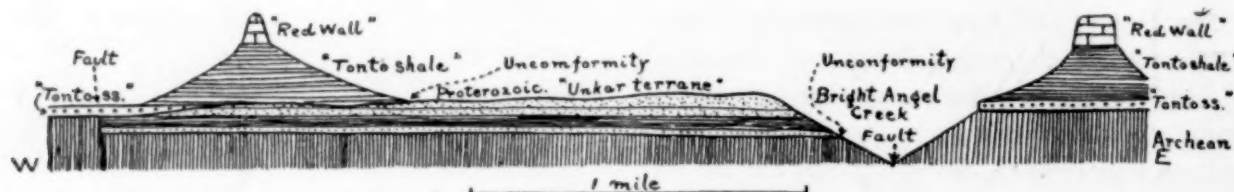 "Red Wall"
Fault
"Tonto shale"
Uncomformity
"Tonto ss."
Proterozoic. "Unkar terrane"
Unconformity
Bright Angel
Creek
Fault
"Red Wall"
Tonto shale"
"Tonto ss."
Archean
W
E
1 mile